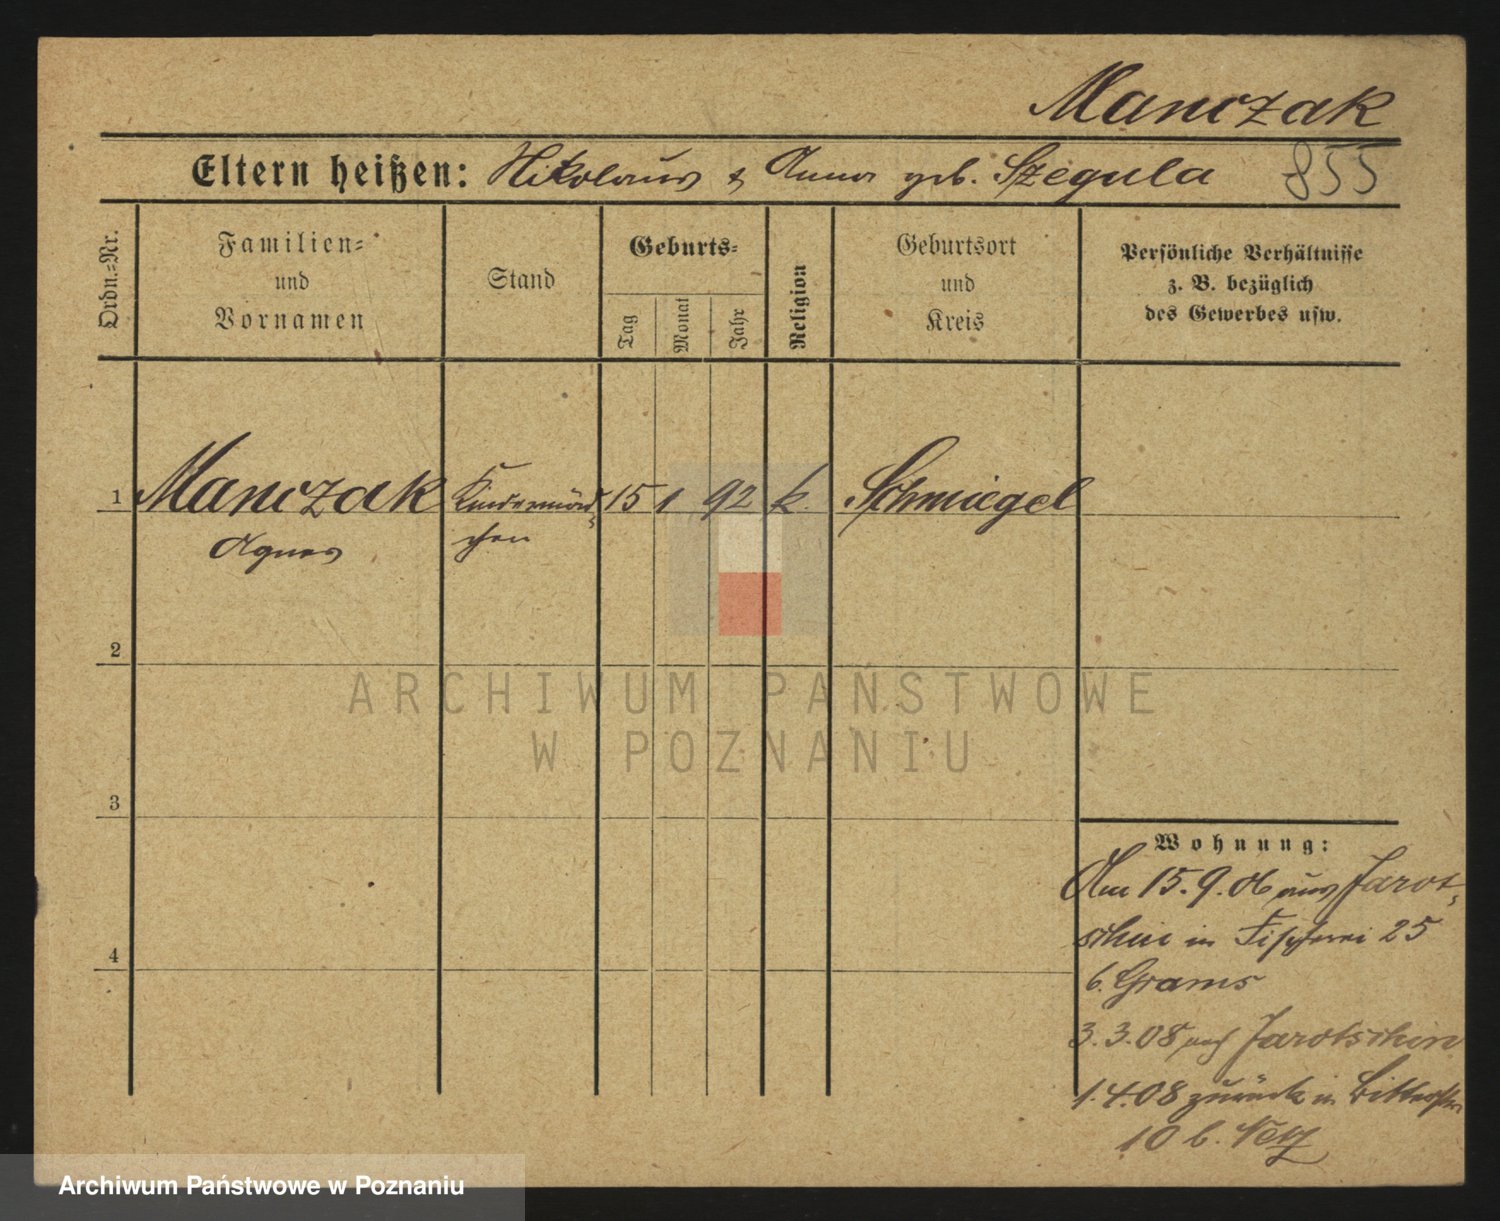 Manczak
Eltern heißen: Nikolaus & Anna geb. Szegula 855
Ordn.-Nr.
Familien-
und
Vornamen
Stand
Geburts-
Tag
Monat
Jahr
Religion
Geburtsort
und
Kreis
Persönliche Verhältnisse
z. B. bezüglich
des Gewerbes usw.
1 Manczak Kindermäd- 15 1 92 k. Schmiegel
Agnes chen
2
ARCHIWUM PAŃSTWOWE
W POZNANIU
3
Wohnung:
Am 15.9.06 aus Jarot-
schin in Fischerei 25
b. Grams
4
3.3.08 nach Jarotschin
1.4.08 zurück in
10 b.
Archiwum Państwowe w Poznaniu